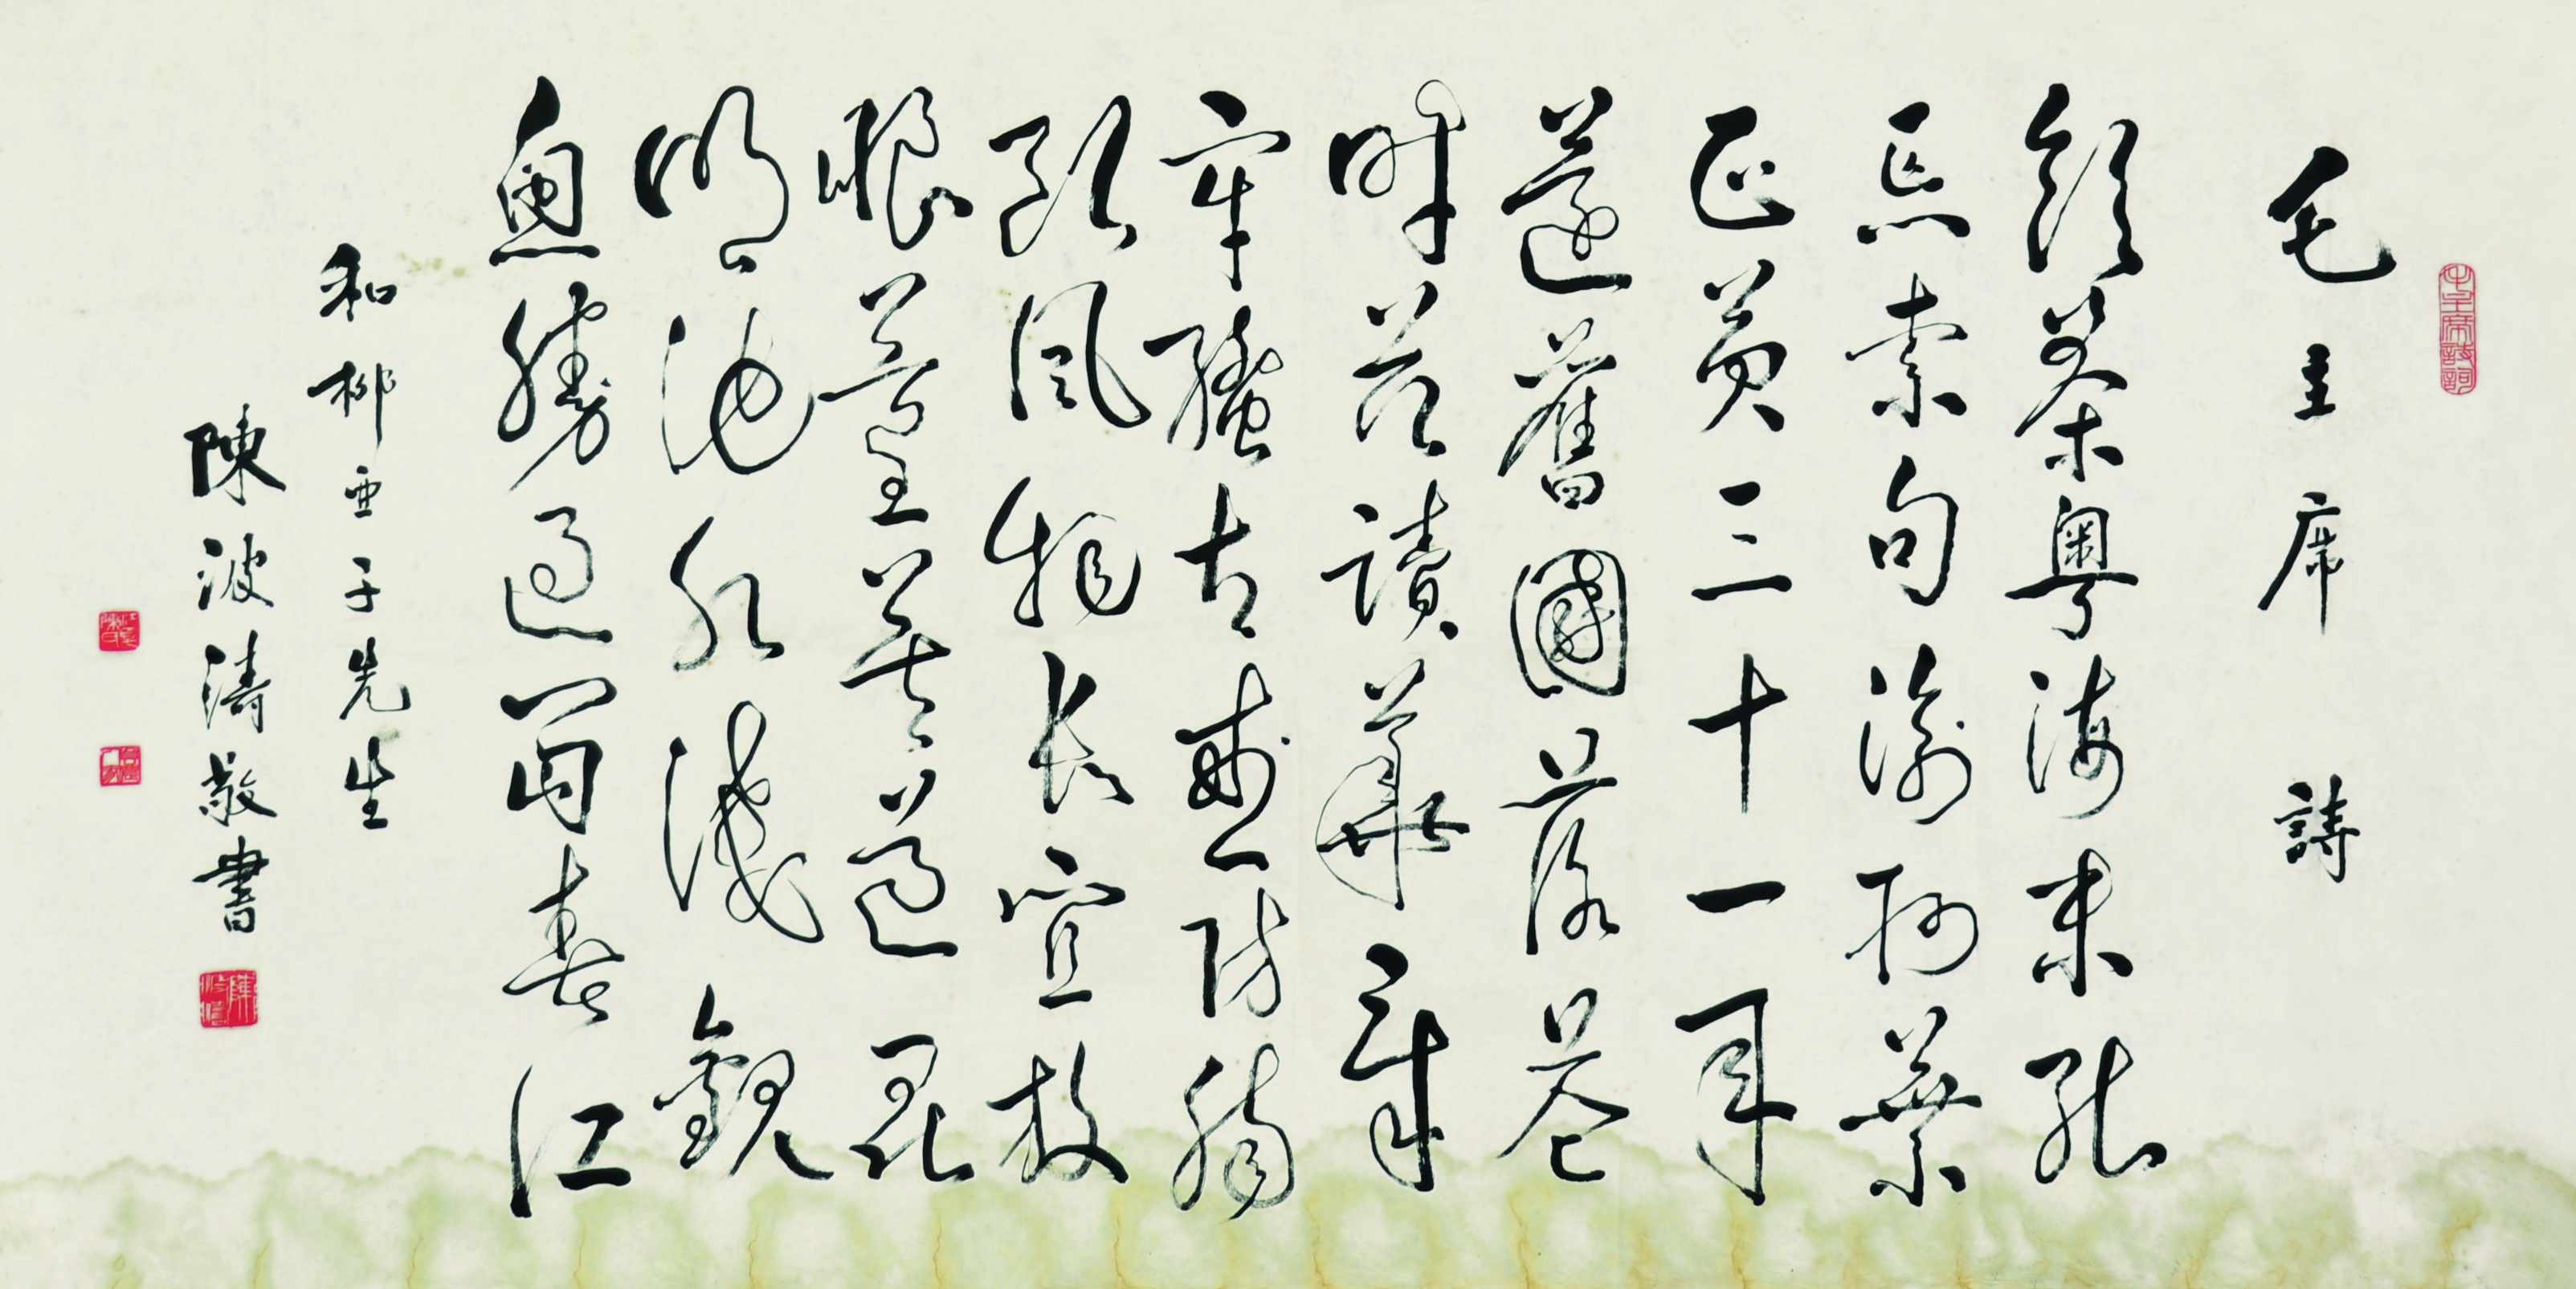 毛主席詩詞
毛主席詩
飲茶粵海未能
忘索句渝州葉
正黃三十一年
還舊國落花
時節讀華章
牢騷太盛防腸
斷風物長宜放
眼量莫道昆
明池水淺觀
魚勝過富春江
和柳亞子先生
陳波濤敬書